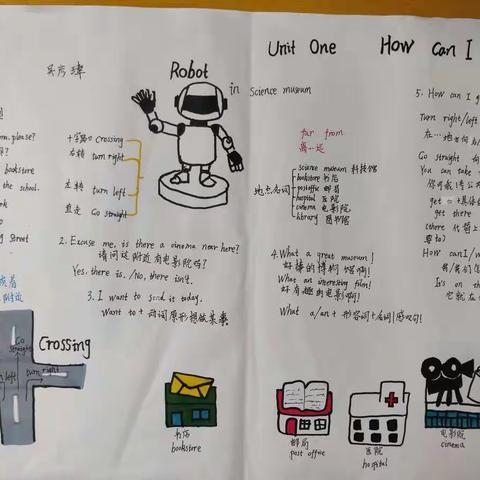 Unit One How Can I
Robot
in Science museum
十字路口 Crossing
右转 turn right
左转 turn left
直走 Go straight
2. Excuse me, is there a cinema near here?
请问这附近有电影院吗?
Yes, there is. /No, there isn't.
3. I want to send it today.
Want to + 动词原形 想做某事
bookstore
the school.
street
附近
Crossing
Go straight
left
turn right
书店
bookstore
far from
离…远
地点名词
science museum 科技馆
bookstore 书店
postoffic 邮局
hospital 医院
cinema 电影院
library 图书馆
4. What a great museum!
好棒的博物馆啊!
What an interesting film!
好有趣的电影啊!
What a/an + 形容词 + 名词 感叹句!
邮局
post office
医院
hospital
电影院
cinema
5. How can I g
Turn right/left
Go straight
You can take
get
get there
there
How can I/w
It's on th
它就在